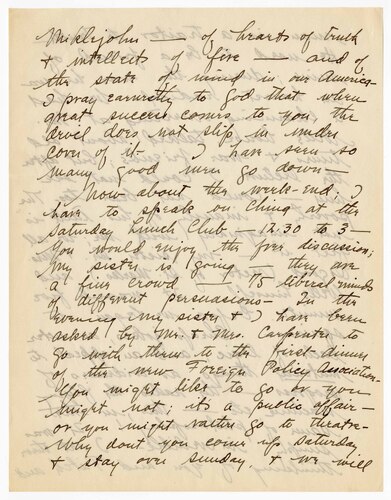 Miklejohn — of hearts of truth
& intellects of fire — and of
the state of mind in our America —
I pray earnestly to God that when
great success comes to you, the
devel does not slip in under
cover of it — I have seen so
many good men go down —
Now about the week-end; I
have to speak on China at the
Saturday Lunch Club — 12:30 to 3 —
You would enjoy the free discussion;
my sister is going — they are
a fine crowd — 75 liberal minds
of different persuasions — In the
evening my sister & I have been
asked by Mr. & Mrs. Carpenter to
go with them to the first dinner
of the new Foreign Policy Association —
You might like to go or you
might not; its a public affair —
or you might rather go to theatre —
Why dont you come up Saturday
& stay over Sunday, & we will